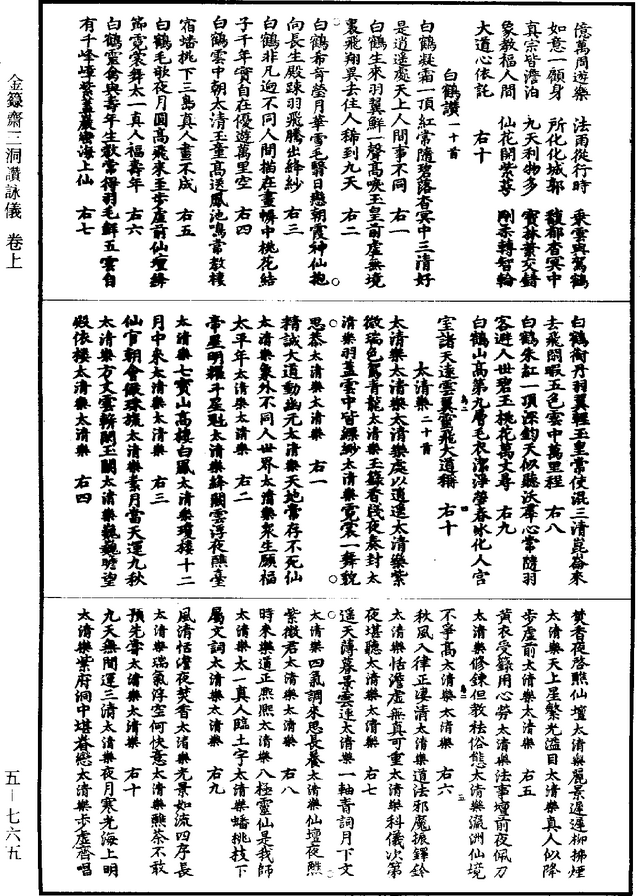 億萬周遊樂　法雨從行時　乘雲與駕鶴
如意一願身　所化化城郭　馥郁杳冥中
真宗皆澹泊　九天利物多　寶林葉交錯
象教福人間　仙花開紫萼　剛柔轉智輪
大道心依託　右十
白鶴讚一十首
白鶴凝霜一頂紅常隨碧落杳冥中三清好
是逍遙處天上人間事不同　右一
白鶴生來羽翼鮮一聲高唳玉皇前虛無境
裏飛翔異去住人稀到九天　右二
白鶴希奇瑩月華雪毛翳日戀朝霞神仙抱
向長生殿踈羽飛騰出絳紗　右三
白鶴非凡迥不同人間描在畫幈中桃花結
子千年實自在優遊萬里空　右四
白鶴雲中朝太清玉童高送鳳池鳴當教棲
宿蟠桃下三島真人畫不成　右五
白鶴毛歌夜月圓高飛來至步虛前仙壇絳
節霓裳舞太一真人福壽年　右六
白鶴靈禽與壽年生教常得羽毛鮮五雲自
有千峰嶂紫蓋巖巒海上仙　右七
白鶴銜丹羽翼輕玉皇當使混三清崑崙來
去飛閒暇五色雲中萬里程　右八
白鶴朱紅一頂深鈞天似聽沃羣心常隨羽
客遊人世碧玉桃花萬丈尋　右九
白鶴山高第九層毛衣潔淨瑩春冰化人宮
室諸天遶雲翼靈飛大道稱　右十
太清樂二十首
太清樂太清樂太清樂處以逍遙太清樂紫
微瑞色駕青龍太清樂玉籙看殘夜奏封太
清樂羽蓋雲中皆縹緲太清樂霓裳一舞貌
思恭太清樂太清樂　右一
精誠大道動幽元太清樂天地常存不死仙
太清樂象外不同人世界太清樂眾生願福
太平年太清樂太清樂　右二
帝星明耀斗星魁太清樂絳闕雲浮夜醮臺
太清樂七寶山高棲白鳳太清樂瓊樓十二
月中來太清樂太清樂　右三
仙官朝會綴珠旒太清樂素月當天運九秋
太清樂方丈雲軿閉玉關太清樂巍巍瞻望
殿依樓太清樂太清樂　右四
焚香夜啓醮仙壇太清樂麗景遲遲柳拂煙
太清樂天上星繁光溢目太清樂真人似降
步虛前太清樂太清樂　右五
黃衣受籙用心勞太清樂法事壇前夜佩刀
太清樂修鍊但教祛俗態太清樂瀛洲仙境
不爭高太清樂太清樂　右六
秋風入律正淒清太清樂道法邪魔振鐸鈴
太清樂恬澹虛無真可重太清樂科儀次第
夜堪聽太清樂太清樂　右七
遥天薄暮景雲連太清樂一軸青詞月下文
太清樂四氣調來思長養太清樂仙壇夜醮
紫微君太清樂太清樂　右八
時來樂道正熙熙太清樂八極靈仙是我師
太清樂太一真人臨土宇太清樂蟠桃枝下
屬文詞太清樂太清樂　右九
風清恬澹夜焚香太清樂光景如流四序長
太清樂瑞氣浮空何快意太清樂醮茶不敢
預先嘗太清樂太清樂　右十
九天無間運三清太清樂夜月寒光海上明
太清樂紫府洞中堪眷戀太清樂步虛齊唱
金籙齋三洞讚詠儀　卷上
五－七六九